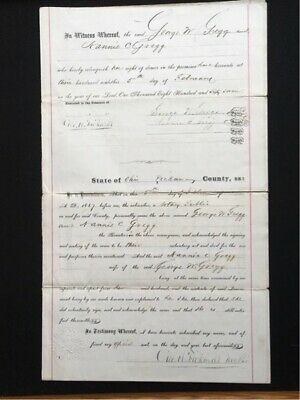 In Witness Whereof, the said George W. Gregg and
Nannie C. Gregg
who hereby relinquish her right of dower in the premises have hereunto set
their hands and seals this 5th day of February
in the year of our Lord One Thousand Eight Hundred and Sixty Seven
Executed in the Presence of
George W. Gregg
Nannie C. Gregg
State of Ohio County, SS:
this 5th day of
A.D. 1867 before me the subscriber a Notary Public
in and for said County, personally came the above named George W. Gregg
and Nannie C. Gregg
the Grantors in the above conveyance, and acknowledged the signing
and sealing of the same to be their voluntary act and deed for the uses
and purposes therein mentioned. And the said Nannie C. Gregg
wife of the said George W. Gregg
being at the same time examined by me
separate and apart from her said husband, and the contents of said Deed
being by me made known and explained to her she then declared that she
did voluntarily sign, seal and acknowledge the same and that she is still
satisfied therewith
In Testimony Whereof, I have hereunto subscribed my name, and af-
fixed my official seal on the day and year last aforesaid